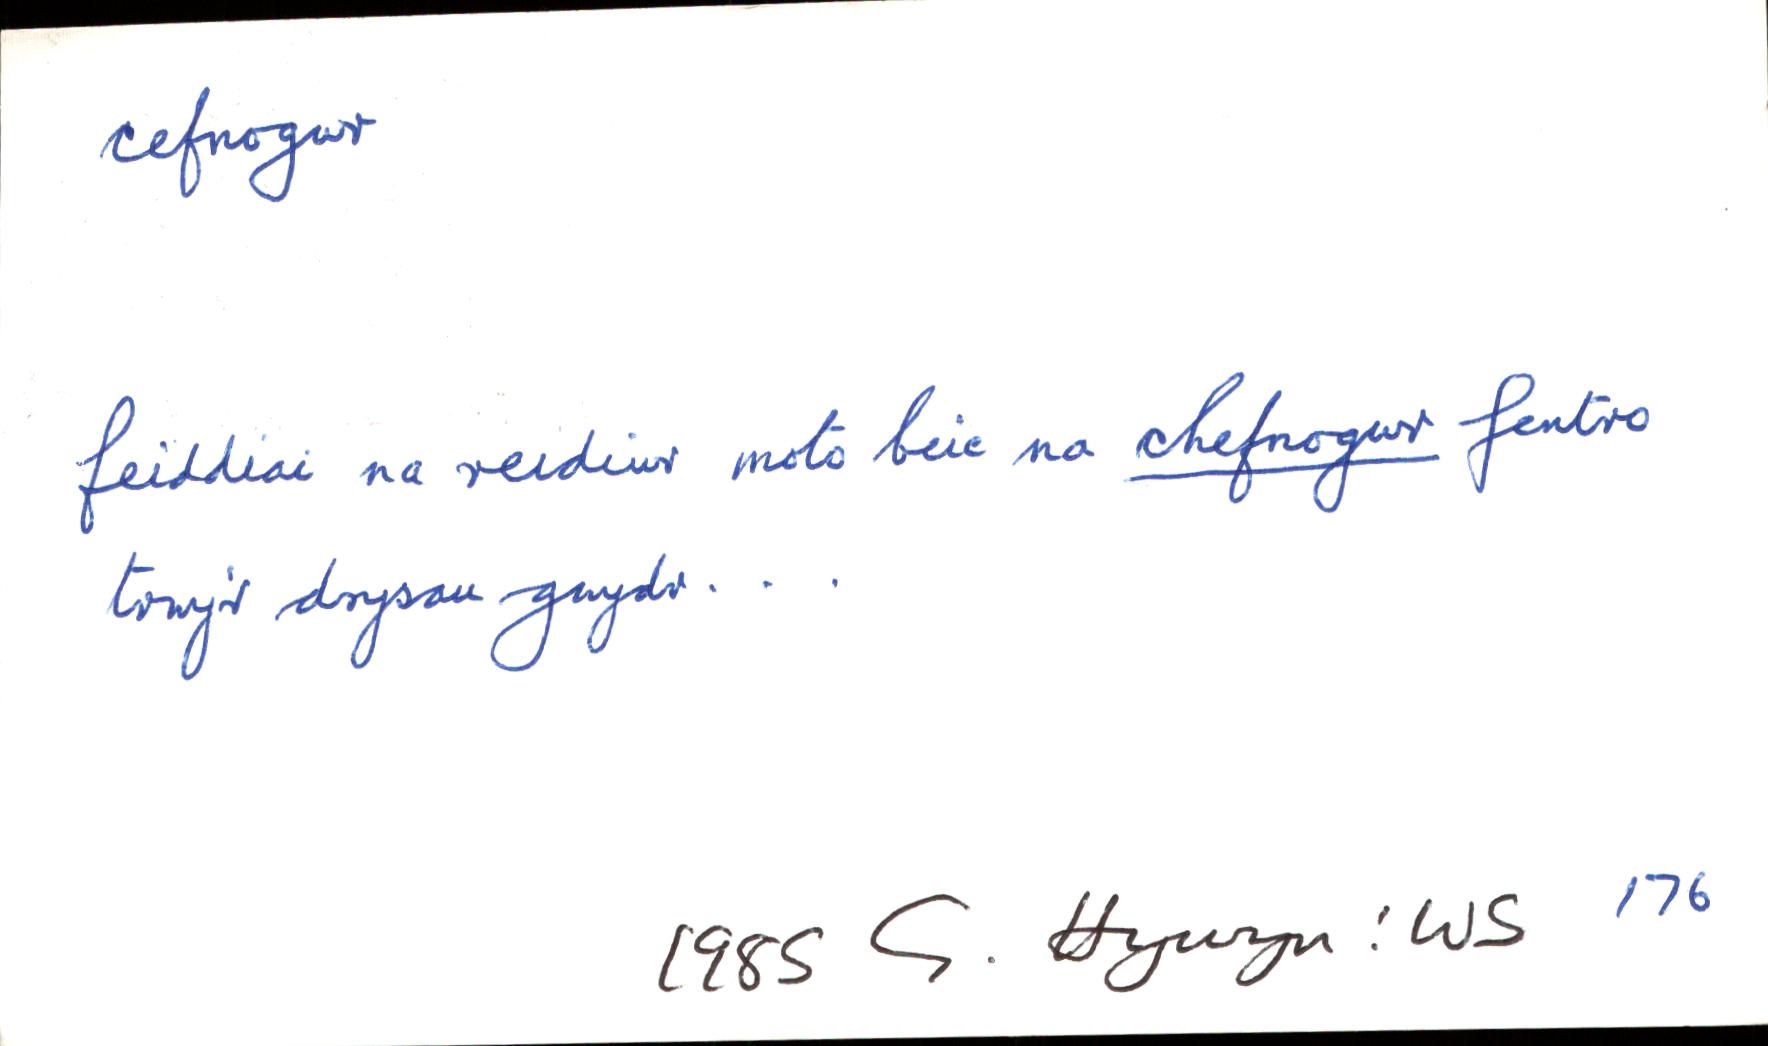 cefnogwr
feiddiai na reidiwr moto beic na chefnogwr fentro
trwy'r drysau gwydr. . .
1985 G. Hywyn : WS 176